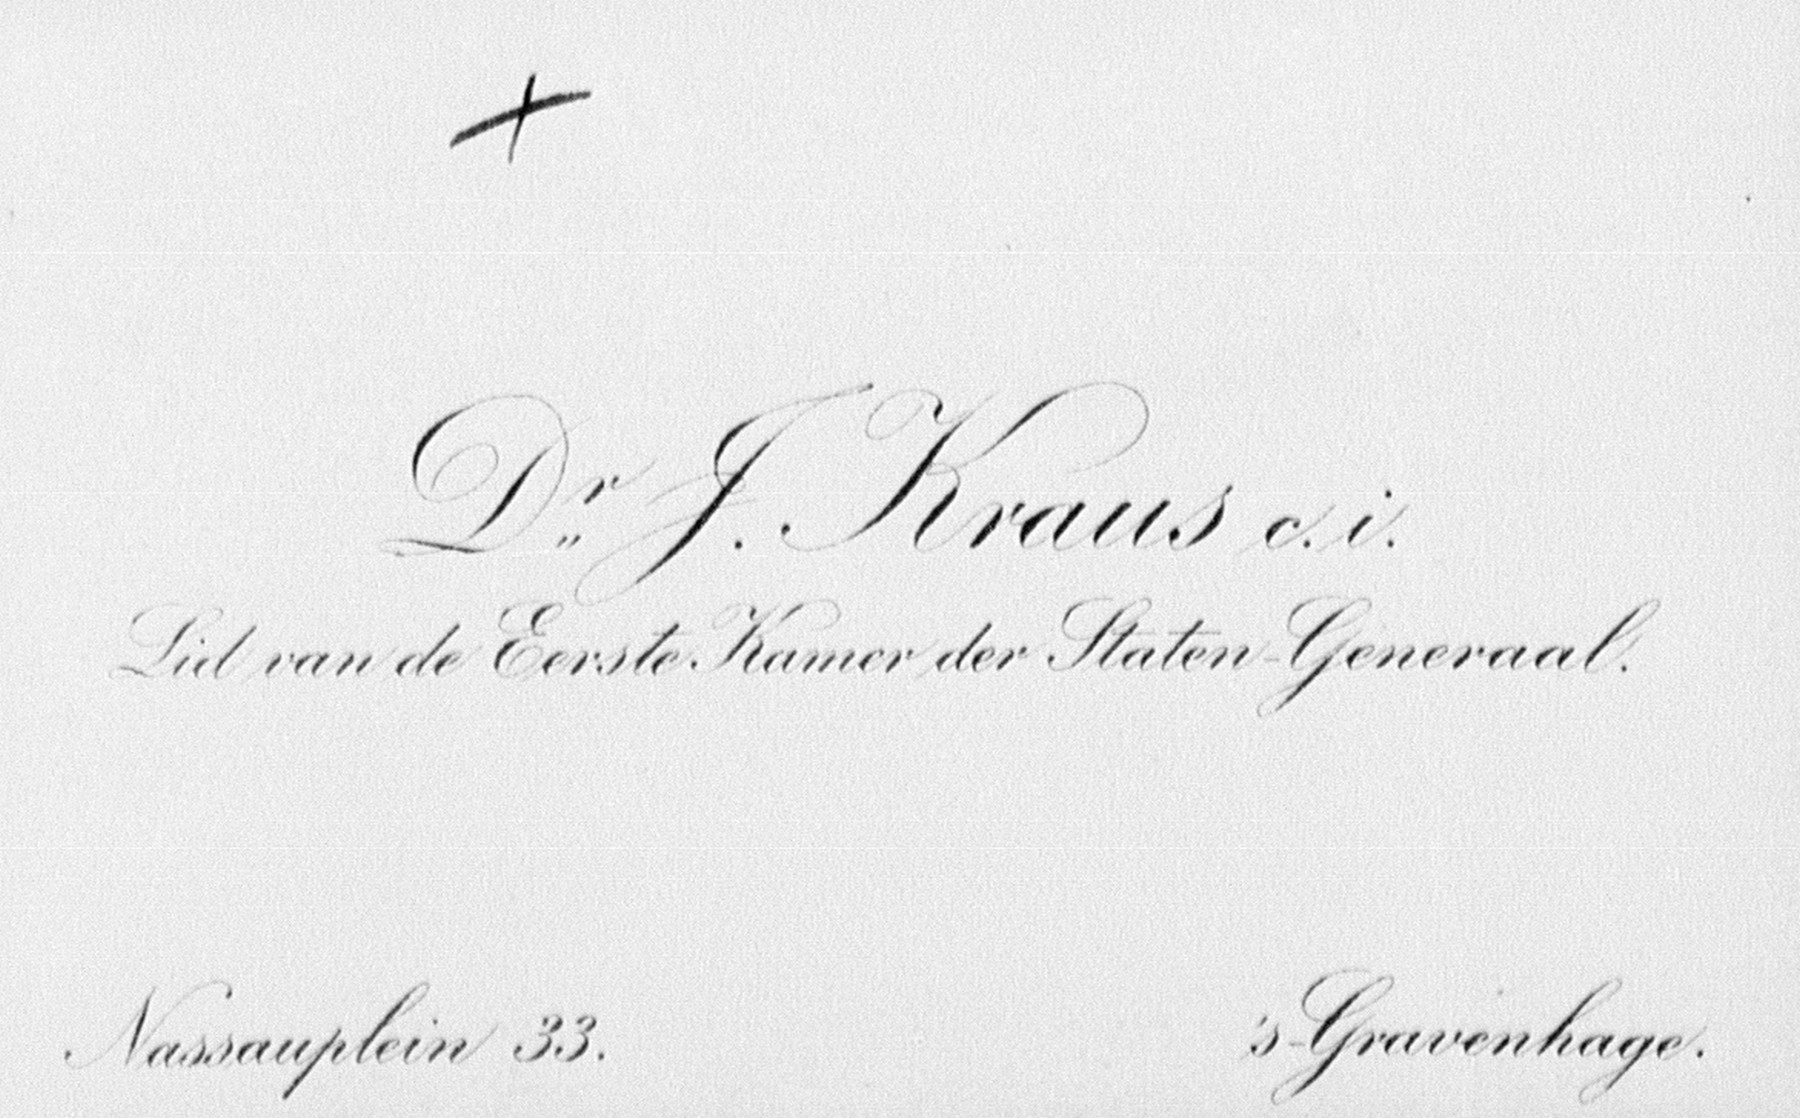 Dr. J. Kraus c.i.
Lid van de Eerste Kamer der Staten-Generaal.
Nassauplein 33.
's-Gravenhage.